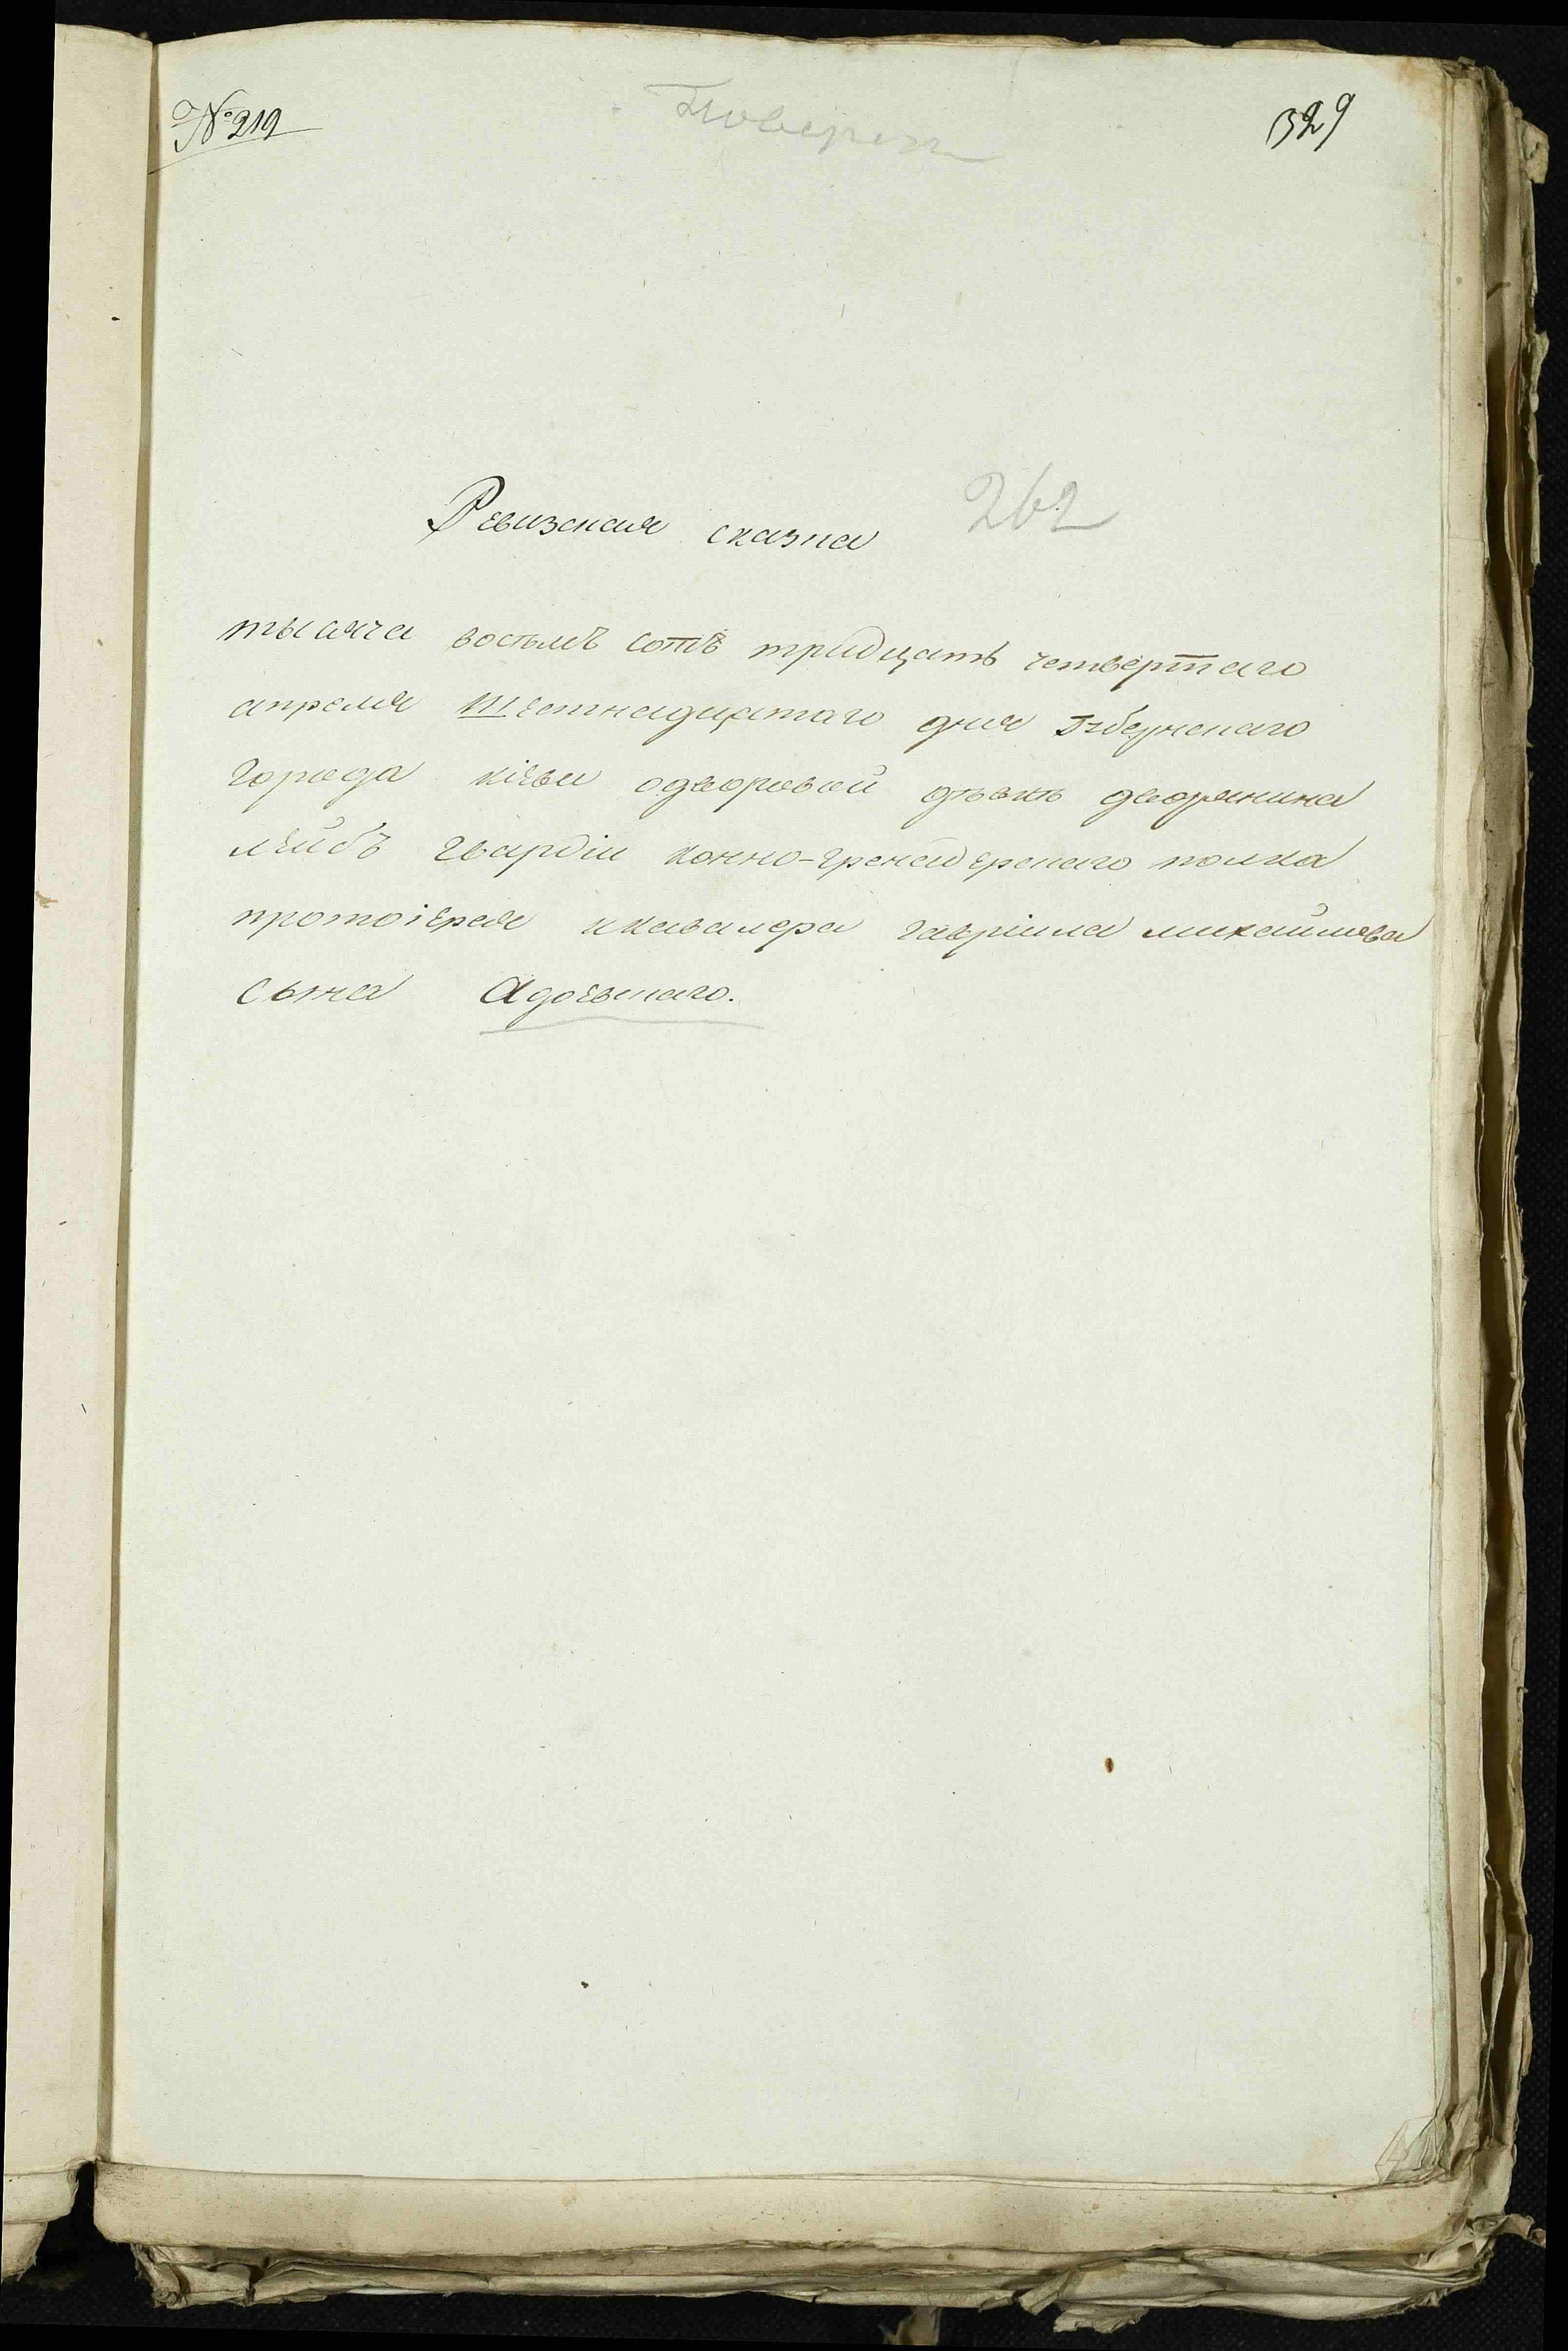 № 212
329
Ревизская сказка
262
тысяча восемъ сотъ тридцать четвертаго
апреля шестнадцатаго дня Губернскаго
города кіева одворовой дѣвкѣ дворянина
лейбъ гвардіи конно-гренадерскаго полка
протоіерея икавалера гавріила михайлова
сына Адоевскаго.